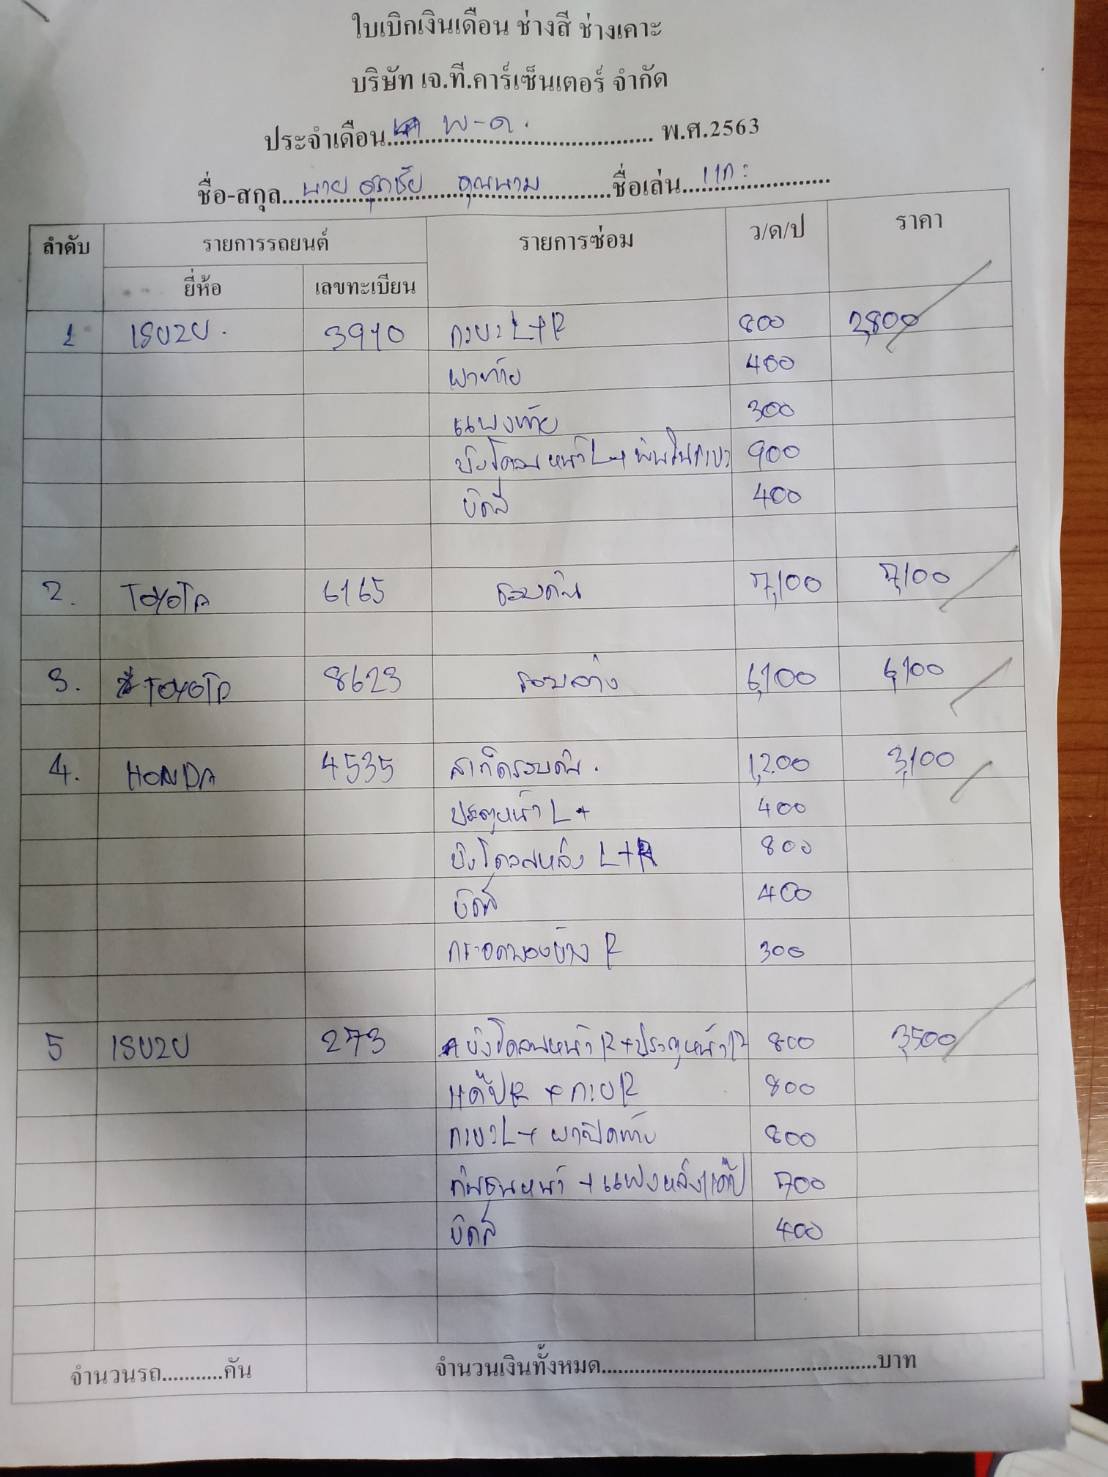 ใบเบิกเงินเดือน ช่างสี ช่างเคาะ
บริษัท เจ.ที.คาร์เซ็นเตอร์ จำกัด
ประจำเดือน พ-ค. พ.ศ.2563
ชื่อ-สกุล นาย ศุภชัย ชื่อเล่น แกะ
ลำดับ รายการรถยนต์ รายการซ่อม ว/ด/ป ราคา
ยี่ห้อ เลขทะเบียน
1 ISUZU. 3910 กระบะ L+R 800 2,800
ฝาท้าย 400
แผงท้าย 300
บังโคลนหน้า L+ พื้นในกระบะ 900
ขัดสี 400
2. TOYOTA 6165 รอบคัน 7,100 7,100
3. TOYOTA 8623 รอบล่าง 6,100 6,100
4. HONDA 4535 สเก็ตรอบคัน. 1,200 3,100
ประตูหน้า L+ 400
บังโคลนหลัง L+R 800
ขัดสี 400
กระจกมองข้าง R 300
5 ISUZU 273 บังโคลนหน้า R+ประตูหน้า R 800 3,500
แค๊ป R + กระบะ R 800
กระบะ L+ ฝาปิดท้าย 800
กันชนหน้า + แผงหลังแค๊ป 700
ขัดสี 400
จำนวนรถ...........คัน จำนวนเงินทั้งหมด..........................................บาท